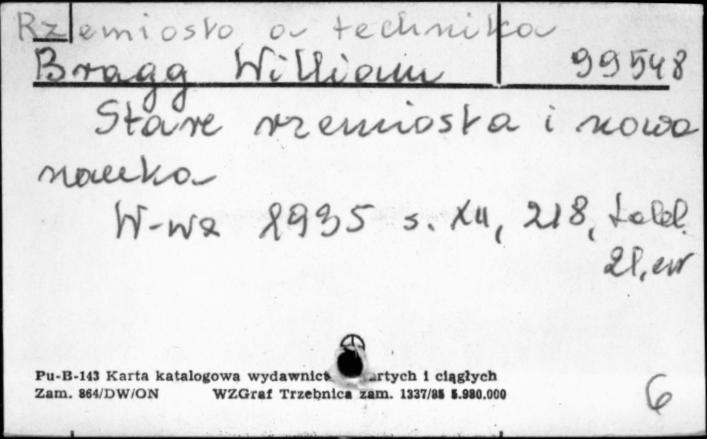 Rzemiosło a technika
Bragg William 99548
Stare rzemiosła i nowa
nauka
W-wa 1935 s. XII, 218, tabl.
21, err
Pu-B-143 Karta katalogowa wydawnict artych i ciągłych
Zam. 864/DW/ON WZGraf Trzebnica zam. 1337/85 5.980.000
6